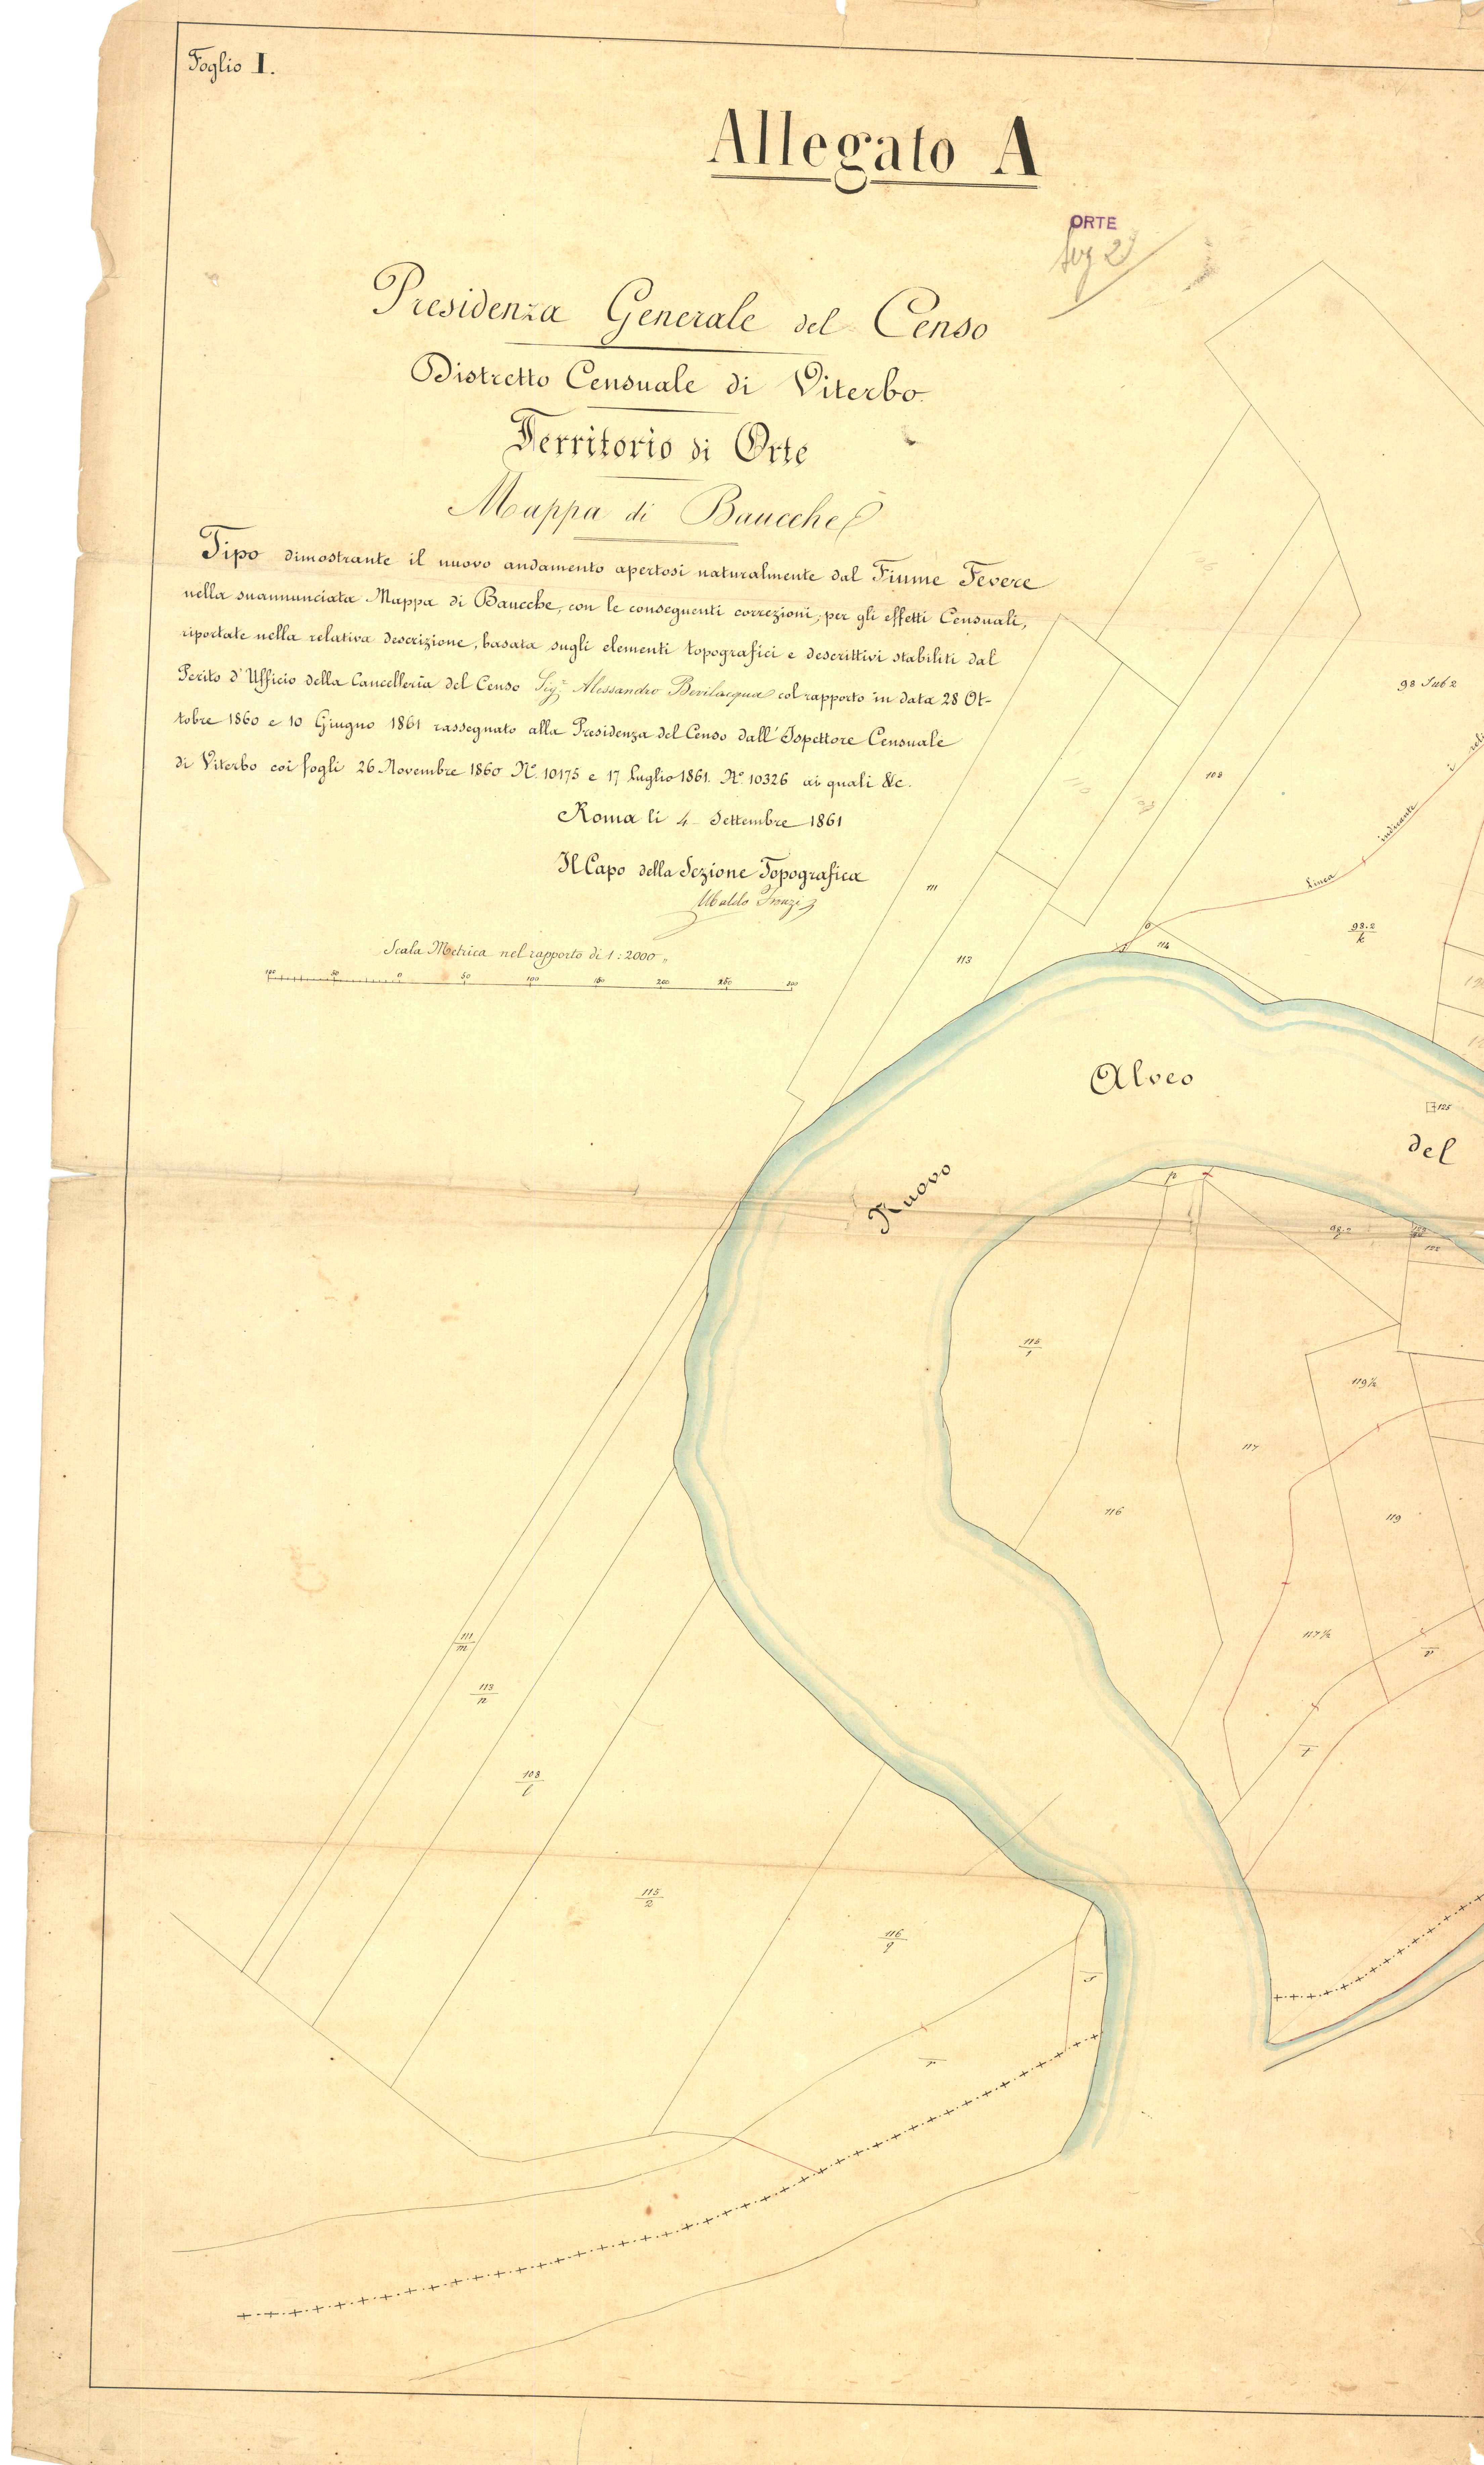 Foglio I.
Allegato A
ORTE
Presidenza Generale del Censo
Distretto Censuale di Viterbo.
Territorio di Orte
Mappa di Baucche
Tipo dimostrante il nuovo andamento apertosi naturalmente dal Fiume Tevere
nella suannunciata Mappa di Baucche, con le conseguenti correzioni, per gli effetti Censuali,
riportate nella relativa descrizione, basata sugli elementi topografici e descrittivi stabiliti dal
Perito d'Ufficio della Cancelleria del Censo Sigr. Alessandro Bevilacqua col rapporto in data 28 Ot-
tobre 1860 e 10 Giugno 1861 rassegnato alla Presidenza del Censo dall'Ispettore Censuale
di Viterbo coi fogli 26 Novembre 1860 No. 10175 e 17 Luglio 1861. No. 10326 ai quali &c.
Roma li 4 Settembre 1861
Il Capo della Sezione Topografica
Scala Metrica nel rapporto di 1:2000
100 50 0 50 100 150 200 250 300
98 Sub 2
108
Linea indicante i
111
113
114
98.2
k
Alveo
125
del
Nuovo
p
98.2
122
115
1
119½
117
116
119
117½
v
t
111
m
113
n
108
l
115
2
116
q
s
r